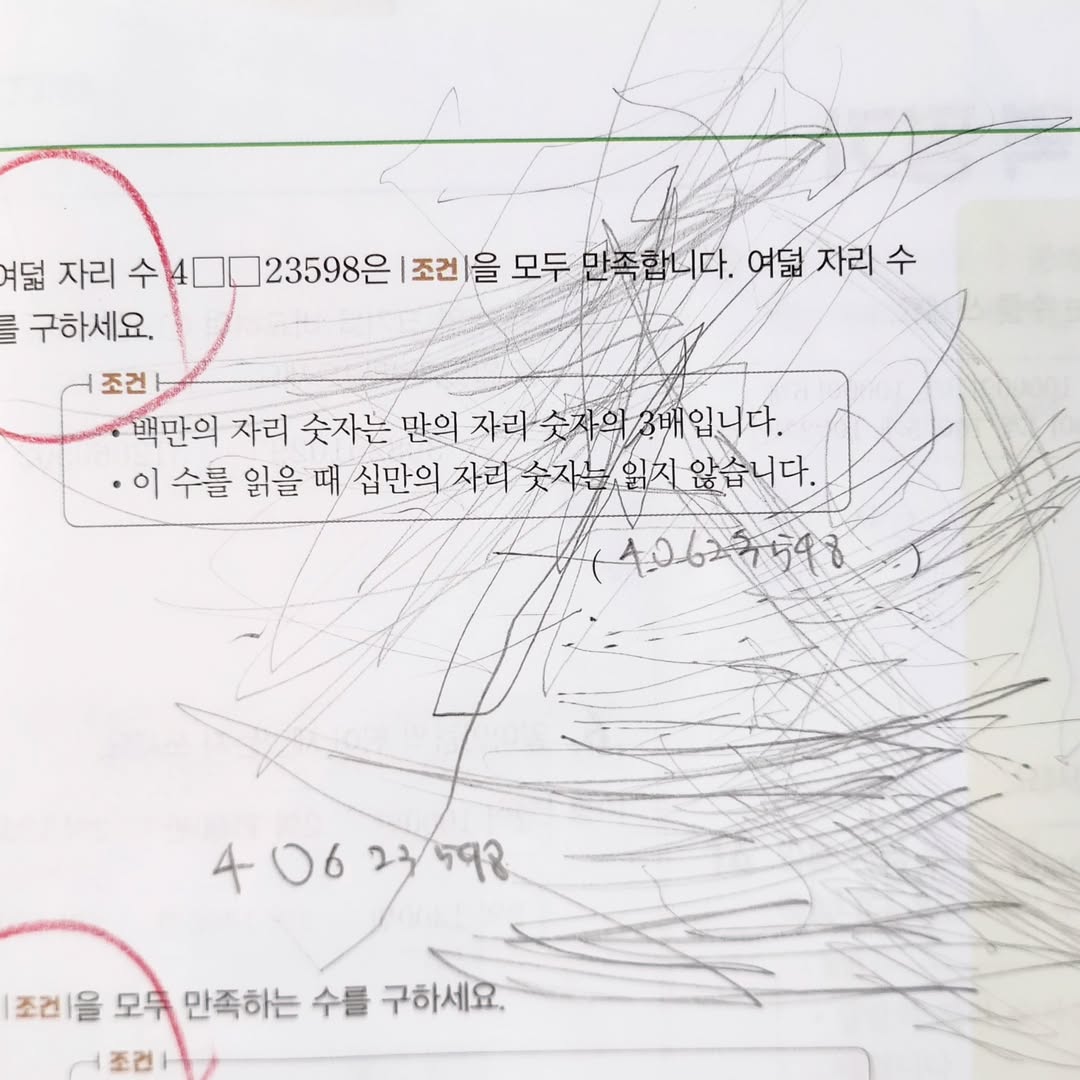 여덟 자리 수 4□□23598은 |조건|을 모두 만족합니다. 여덟 자리 수
를 구하세요.
조건
• 백만의 자리 숫자는 만의 자리 숫자의 3배입니다.
• 이 수를 읽을 때 십만의 자리 숫자는 읽지 않습니다.
( 40623598 )
40623598
|조건|을 모두 만족하는 수를 구하세요.
조건